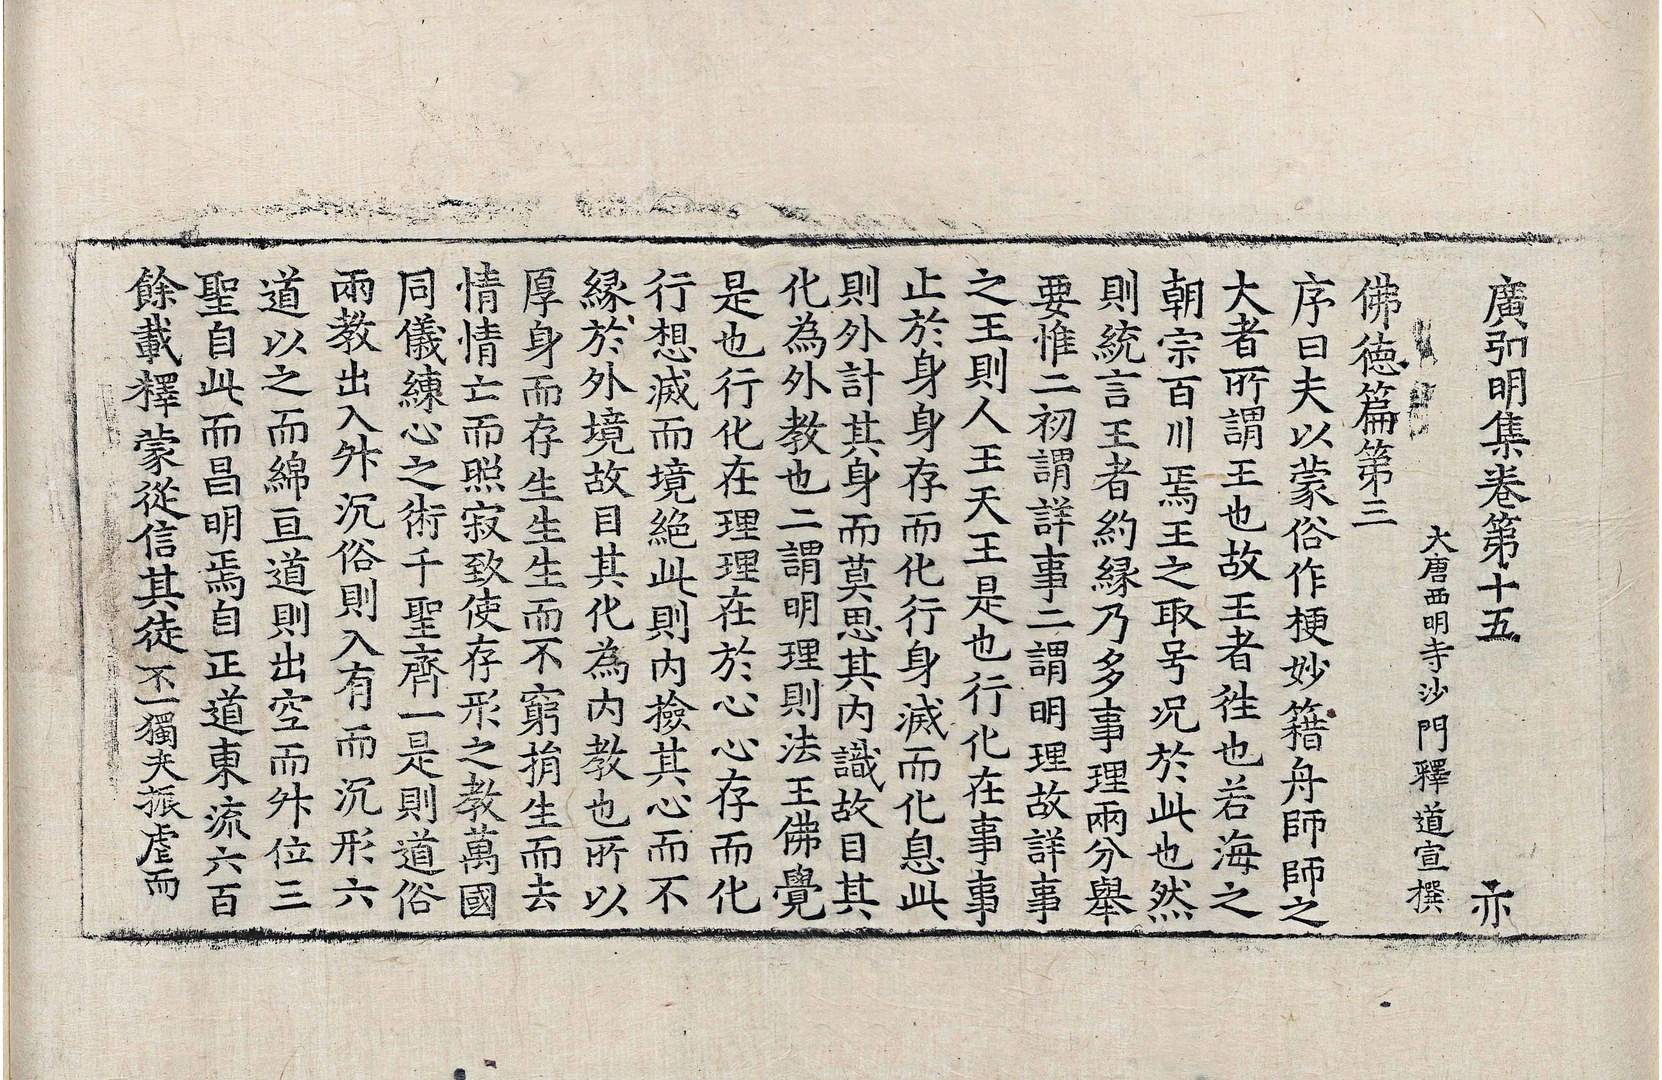 廣弘明集卷第十五 亦
大唐西明寺沙門釋道宣撰
佛徳篇第三
序曰夫以蒙俗作梗妙籍舟師師之
大者所謂王也故王者徃也若海之
朝宗百川焉王之取号况於此也然
則統言王者約縁乃多事理兩分舉
要惟二初謂詳事二謂明理故詳事
之王則人王天王是也行化在事事
止於身身存而化行身滅而化息此
則外計其身而莫思其内識故目其
化為外教也二謂明理則法王佛覺
是也行化在理理在於心心存而化
行想滅而境絶此則内撿其心而不
縁於外境故目其化為内教也所以
厚身而存生生生而不窮捐生而去
情情亡而照寂致使存形之教萬國
同儀練心之術千聖齊一是則道俗
兩教出入升沉俗則入有而沉形六
道以之而綿亘道則出空而升位三
聖自此而昌明焉自正道東流六百
餘載釋蒙從信其徒不一獨夫振虐而